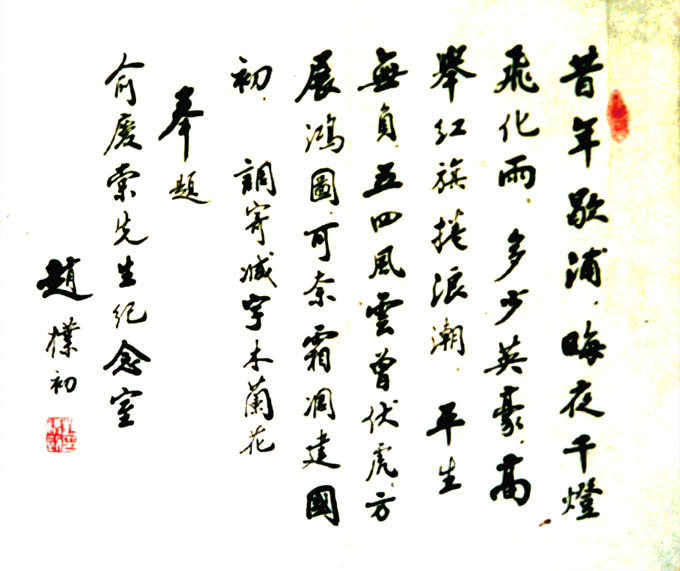 昔年歇浦，晦夜千燈
飛化雨，多少英豪，高
舉紅旗捲浪潮　平生
無負，五四風雲曾伏虎，方
展鴻圖，可奈霜凋建國
初，　調寄減字木蘭花
奉題
俞慶棠先生纪念室
趙樸初